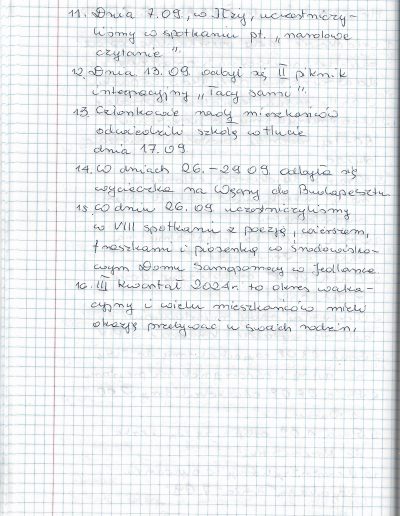 11. Dnia 7.09., w Iłży, uczestniczy-
liśmy w spotkaniu pt. „narodowe
czytanie".
12. Dnia 13.09 odbył się II piknik
integracyjny „Tacy sami".
13. Członkowie rady mieszkańców
odwiedzili szkołę w
dnia 17.09
14. W dniach 26.-29.09 odbyła się
wycieczka na Węgry do Budapesztu
15. W dniu 26.09 uczestniczyliśmy
w VIII spotkaniu z poezją, wierszem,
fraszkami i piosenką w Środowisko-
wym Domu Samopomocy w Jedlance
16. III kwartał 2024r. to okres waka-
cyjny i wielu mieszkańców mieli
okazję przebywać u swoich rodzin.